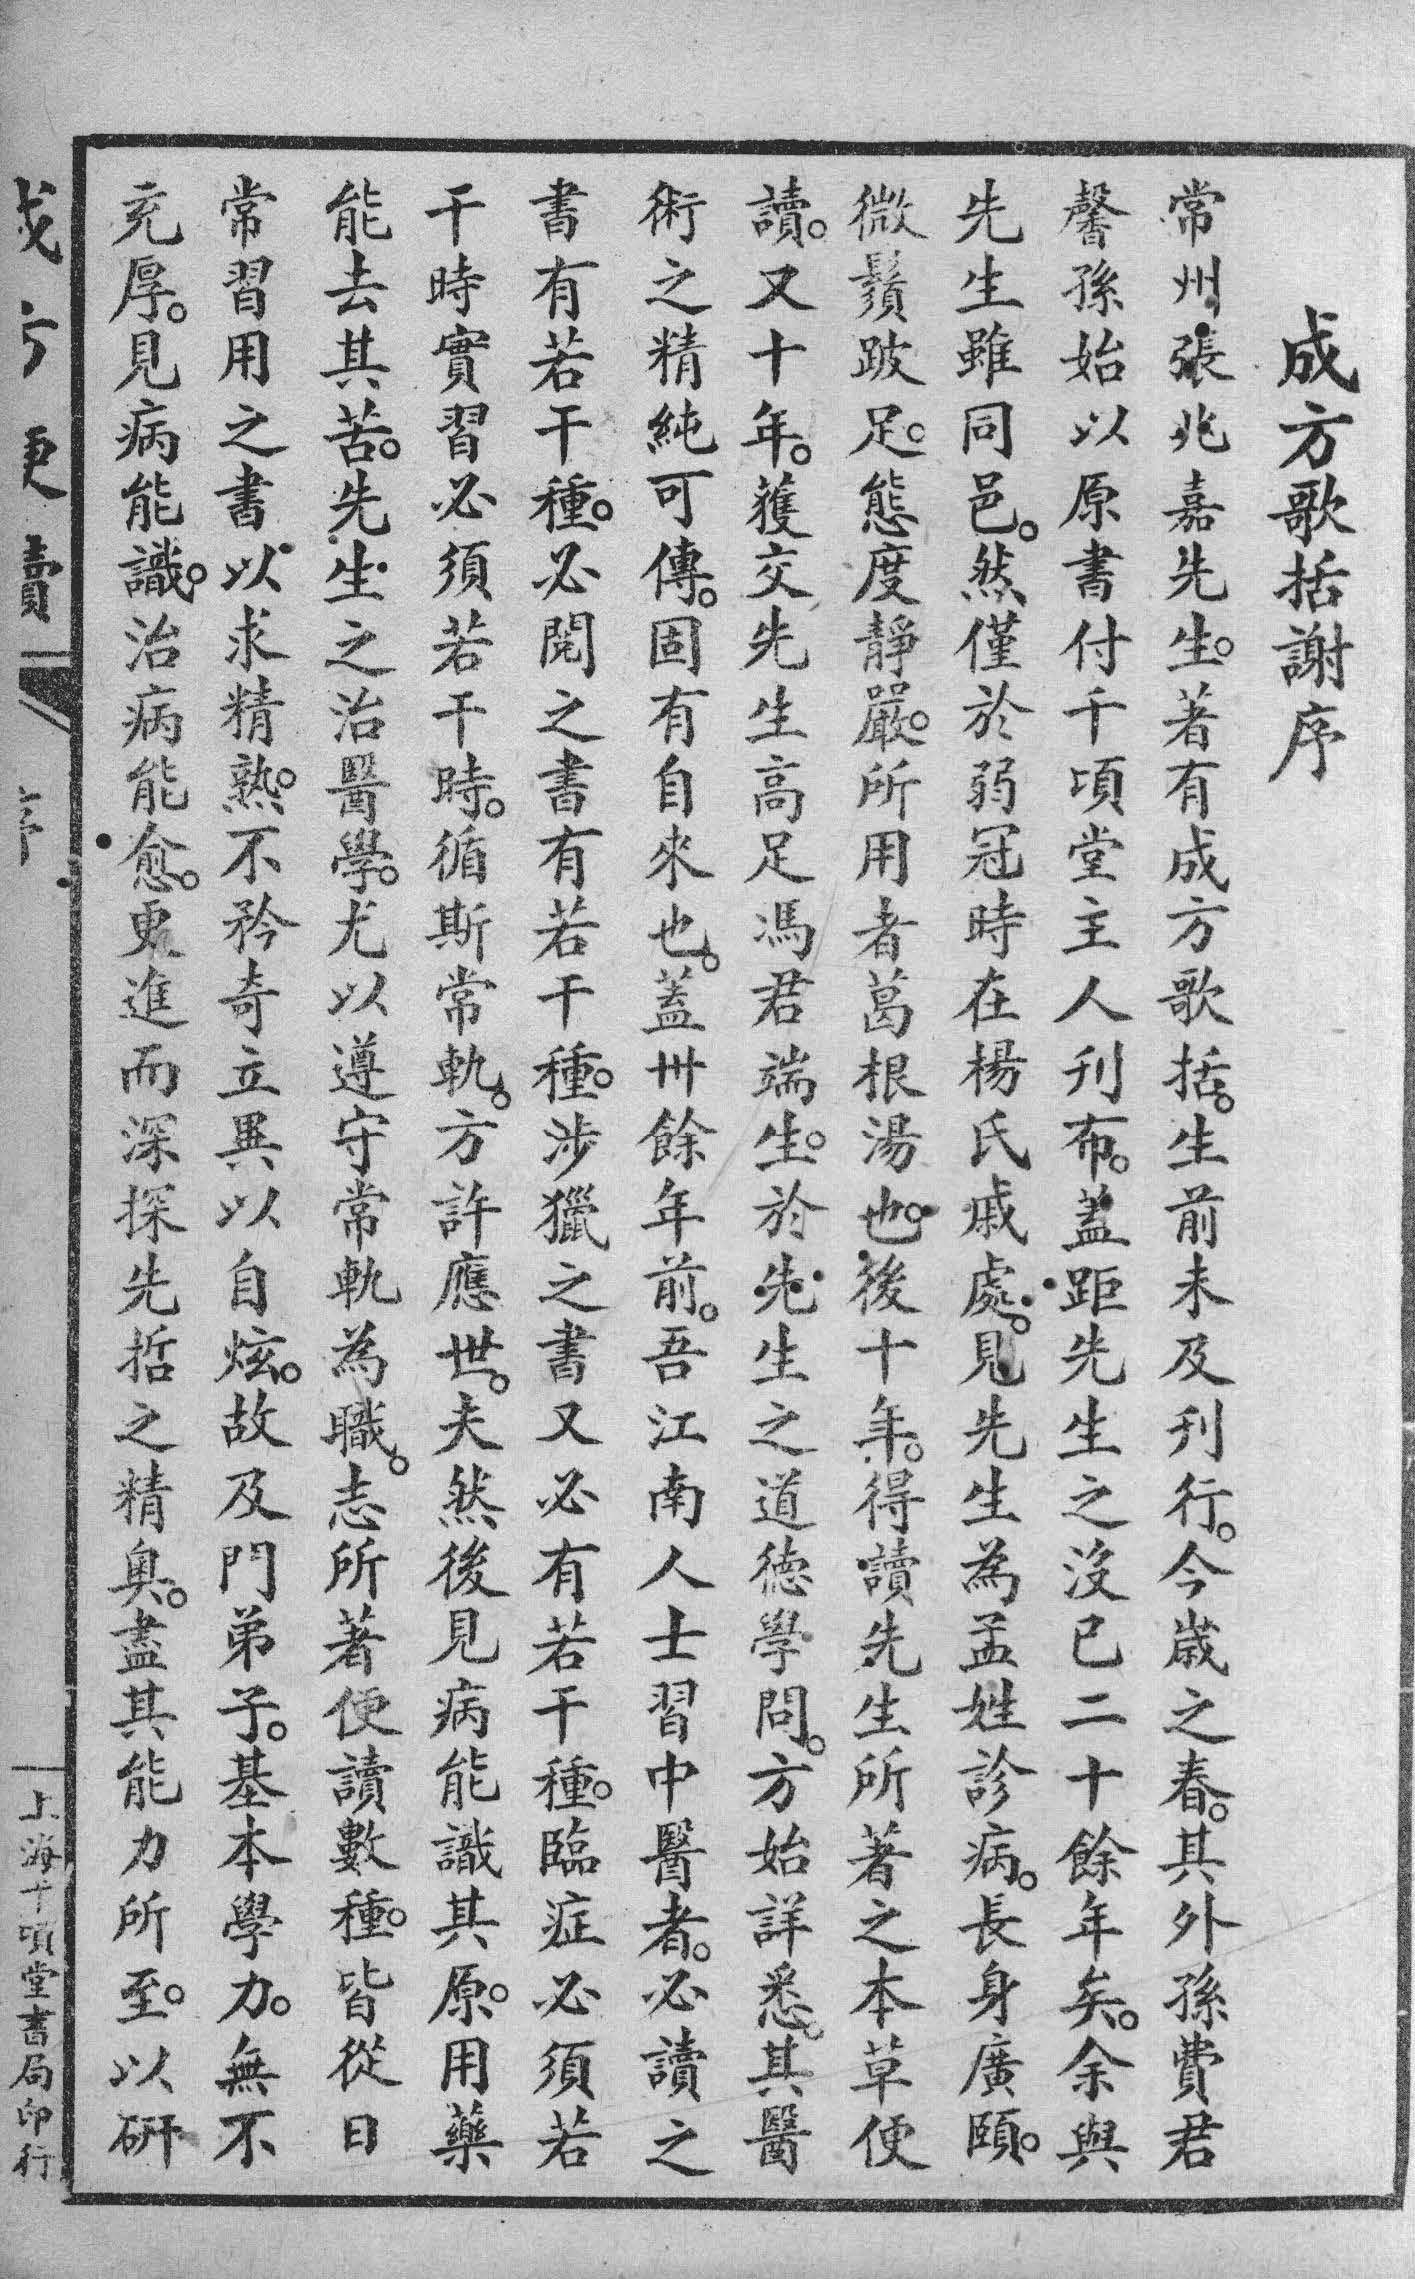 成方歌括謝序
常州張兆嘉先生。著有成方歌括。生前未及刊行。今歲之春。其外孫費君
馨孫始以原書付千頃堂主人刊布。蓋距先生之沒已二十餘年矣。余與
先生雖同邑。然僅於弱冠時在楊氏戚處。見先生為孟姓診病。長身廣頤。
微鬚跛足。態度靜嚴。所用者葛根湯也。後十年。得讀先生所著之本草便
讀。又十年。獲交先生高足馮君端生。於先生之道德學問。方始詳悉。其醫
術之精純可傳。固有自來也。蓋卅餘年前。吾江南人士習中醫者。必讀之
書有若干種。必閱之書有若干種。涉獵之書又必有若干種。臨症必須若
干時實習必須若干時。循斯常軌。方許應世。夫然後見病能識其原。用藥
能去其苦。先生之治醫學。尤以遵守常軌為職。志所著便讀數種。皆從日
常習用之書以求精熟。不矜奇立異以自炫。故及門弟子。基本學力。無不
充厚。見病能識。治病能愈。更進而深探先哲之精奧。盡其能力所至。以研
成方便讀 序
上海千頃堂書局印行